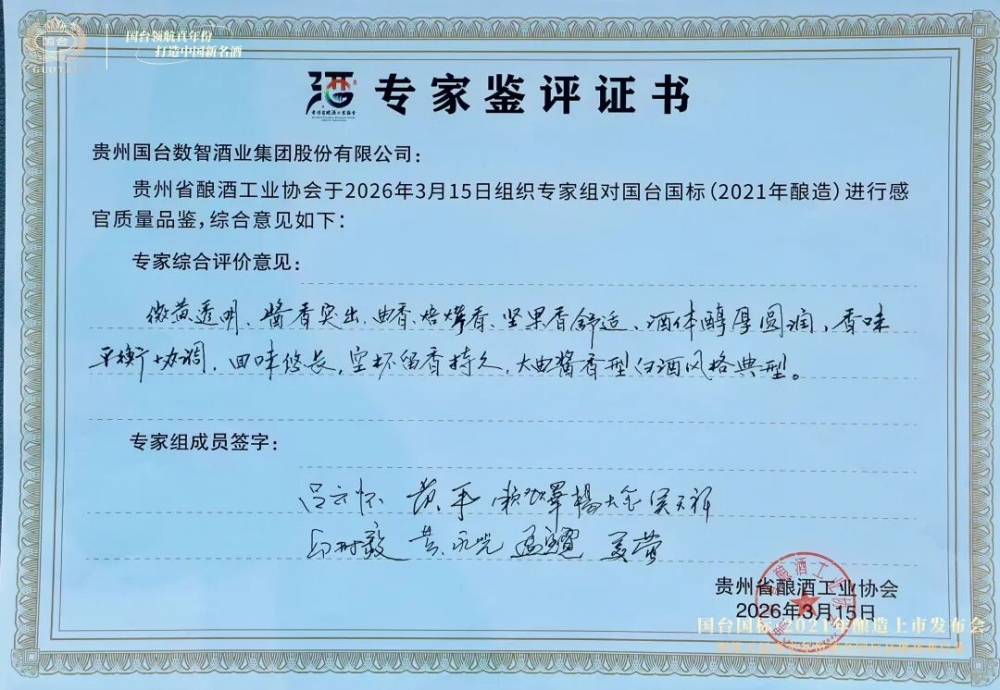 国台
GUOTAI
国台领航真年份
打造中国新名酒
酒
贵州省酿酒工业协会
专家鉴评证书
贵州国台数智酒业集团股份有限公司：
贵州省酿酒工业协会于2026年3月15日组织专家组对国台国标（2021年酿造）进行感
官质量品鉴，综合意见如下：
专家综合评价意见：
微黄透明、酱香突出、曲香、焙烤香、坚果香舒适、酒体醇厚圆润、香味
平衡协调，回味悠长，空杯留香持久，大曲酱香型白酒风格典型。
专家组成员签字：
吕云怀 黄平 杨大金 吴天祥
黄永光
贵州省酿酒工业协会
2026年3月15日
国台国标（2021年酿造）上市发布会